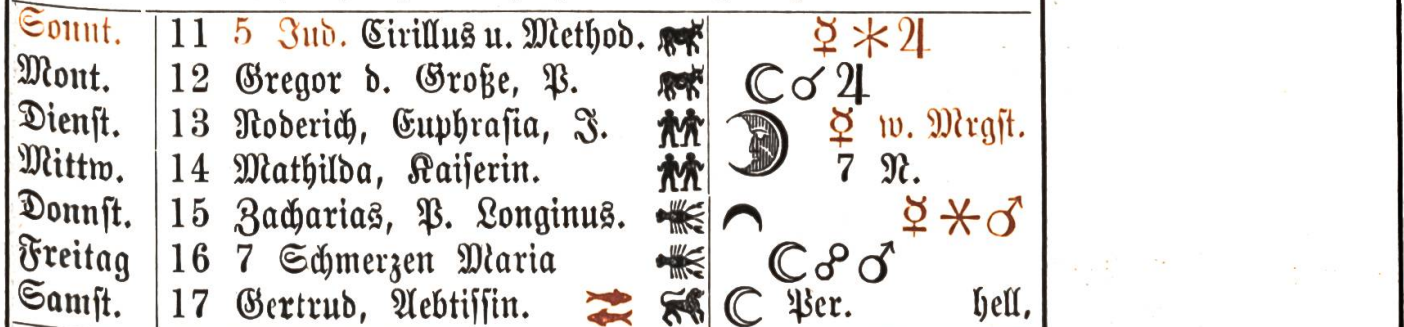 Sonnt. 11 5 Jud. Cirillus u. Method. ☿ ⚹ ♃
Mont. 12 Gregor d. Große, P. ☾ ☌ ♃
Dienst. 13 Roderich, Euphrasia, J. ☿ w. Mrgst.
Mittw. 14 Mathilda, Kaiserin. 7 N.
Donnst. 15 Zacharias, P. Longinus. ☿ ⚹ ♂
Freitag 16 7 Schmerzen Maria ☾ ☍ ♂
Samst. 17 Gertrud, Aebtissin. ☾ Per. hell,